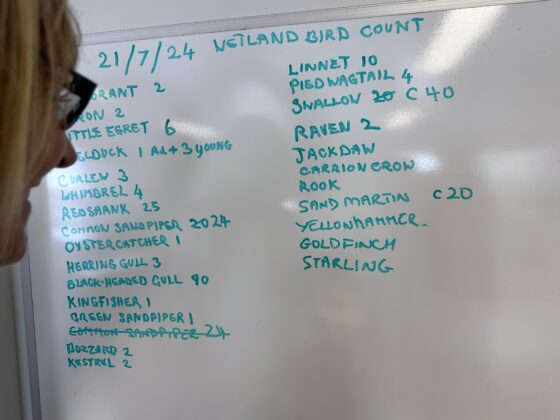 21/7/24 WETLAND BIRD COUNT
ORANT 2
RON 2
ITTLE EGRET 6
ELDUCK 1 Ad + 3 young
CURLEW 3
WHIMBREL 4
REDSHANK 25
COMMON SANDPIPER 2024
OYSTERCATCHER 1
HERRING GULL 3
BLACK-HEADED GULL 90
KINGFISHER 1
GREEN SANDPIPER 1
COMMON SANDPIPER 24
BUZZARD 2
KESTREL 2
LINNET 10
PIED WAGTAIL 4
SWALLOW 20 C 40
RAVEN 2
JACKDAW
CARRION CROW
ROOK
SAND MARTIN C 20
YELLOWHAMMER
GOLDFINCH
STARLING